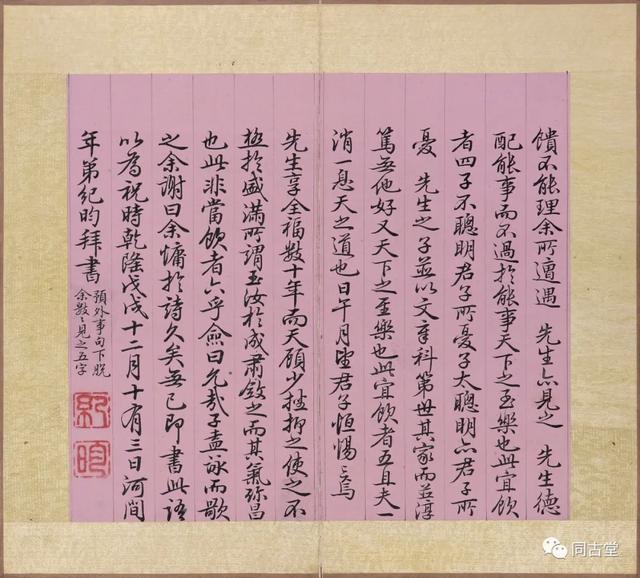 愦不能理余所遭遇　先生亦见之　先生德
配能事而不過於能事天下之至樂也此宜飲
者四子不聰明君子所憂子太聰明亦君子所
憂　先生之子並以文章科第世其家而並淳
篤無他好又天下之至樂也此宜飲者五且夫一
消一息天之道也日午月望君子恒惕〻焉
先生享全福數十年而天顧少挫抑之使之不
極於盛滿所謂玉汝於成肅斂之而其氣弥昌
也此非當飲者六乎僉曰允哉子盍詠而歌
之余謝曰余慵於詩久矣無已即書此語
以為祝時乾隆戊戌十二月十有三日河間
年第紀昀拜書
預外事句下脫
余數〻見之五字
紀
昀
同古堂